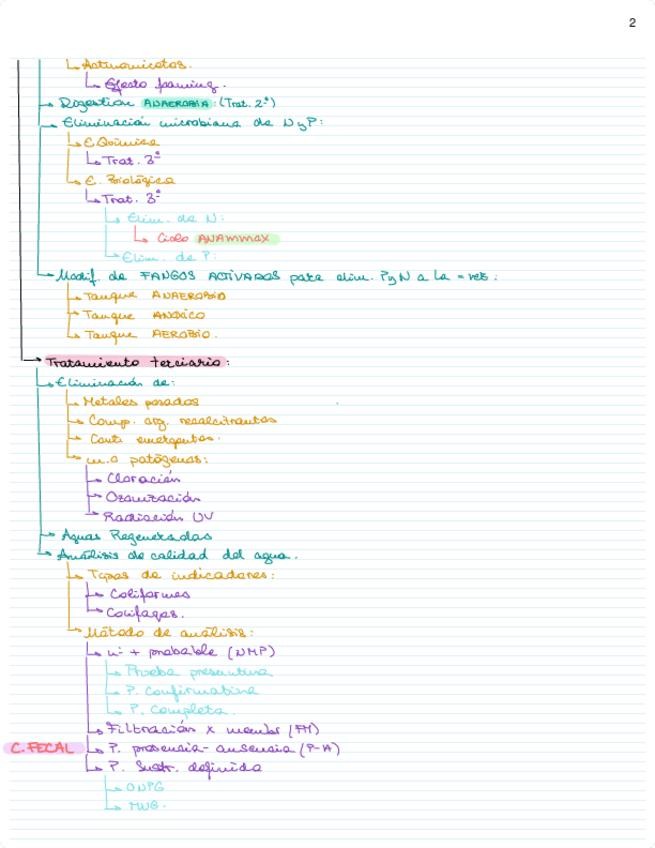 2
Actinomicetos.
Efecto foaming.
Digestion ANAEROBIA: (Trat. 2º)
Eliminación microbiana de N y P:
E. Química
Trat. 3º
E. Biológica
Trat. 3º
Elim. de N:
Ciclo ANAMMOX
Elim. de P:
Modif. de FANGOS ACTIVADOS para elim. P y N a la = vez:
Tanque ANAEROBIO
Tanque ANÓXICO
Tanque AEROBIO.
Tratamiento terciario:
Eliminación de:
Metales pesados
Comp. org. recalcitrantes
Cont. emergentes.
m.o patógenos:
Cloración
Ozonización
Radiación UV
Aguas Regeneradas
Análisis de calidad del agua.
Tipos de indicadores:
Coliformes
Colifagos.
Método de análisis:
nº + probable (NMP)
Prueba presuntiva
P. Confirmativa
P. Completa.
Filtración x membr (FM)
C. FECAL P. presencia-ausencia (P-A)
P. Sustr. definido
ONPG
MUG.